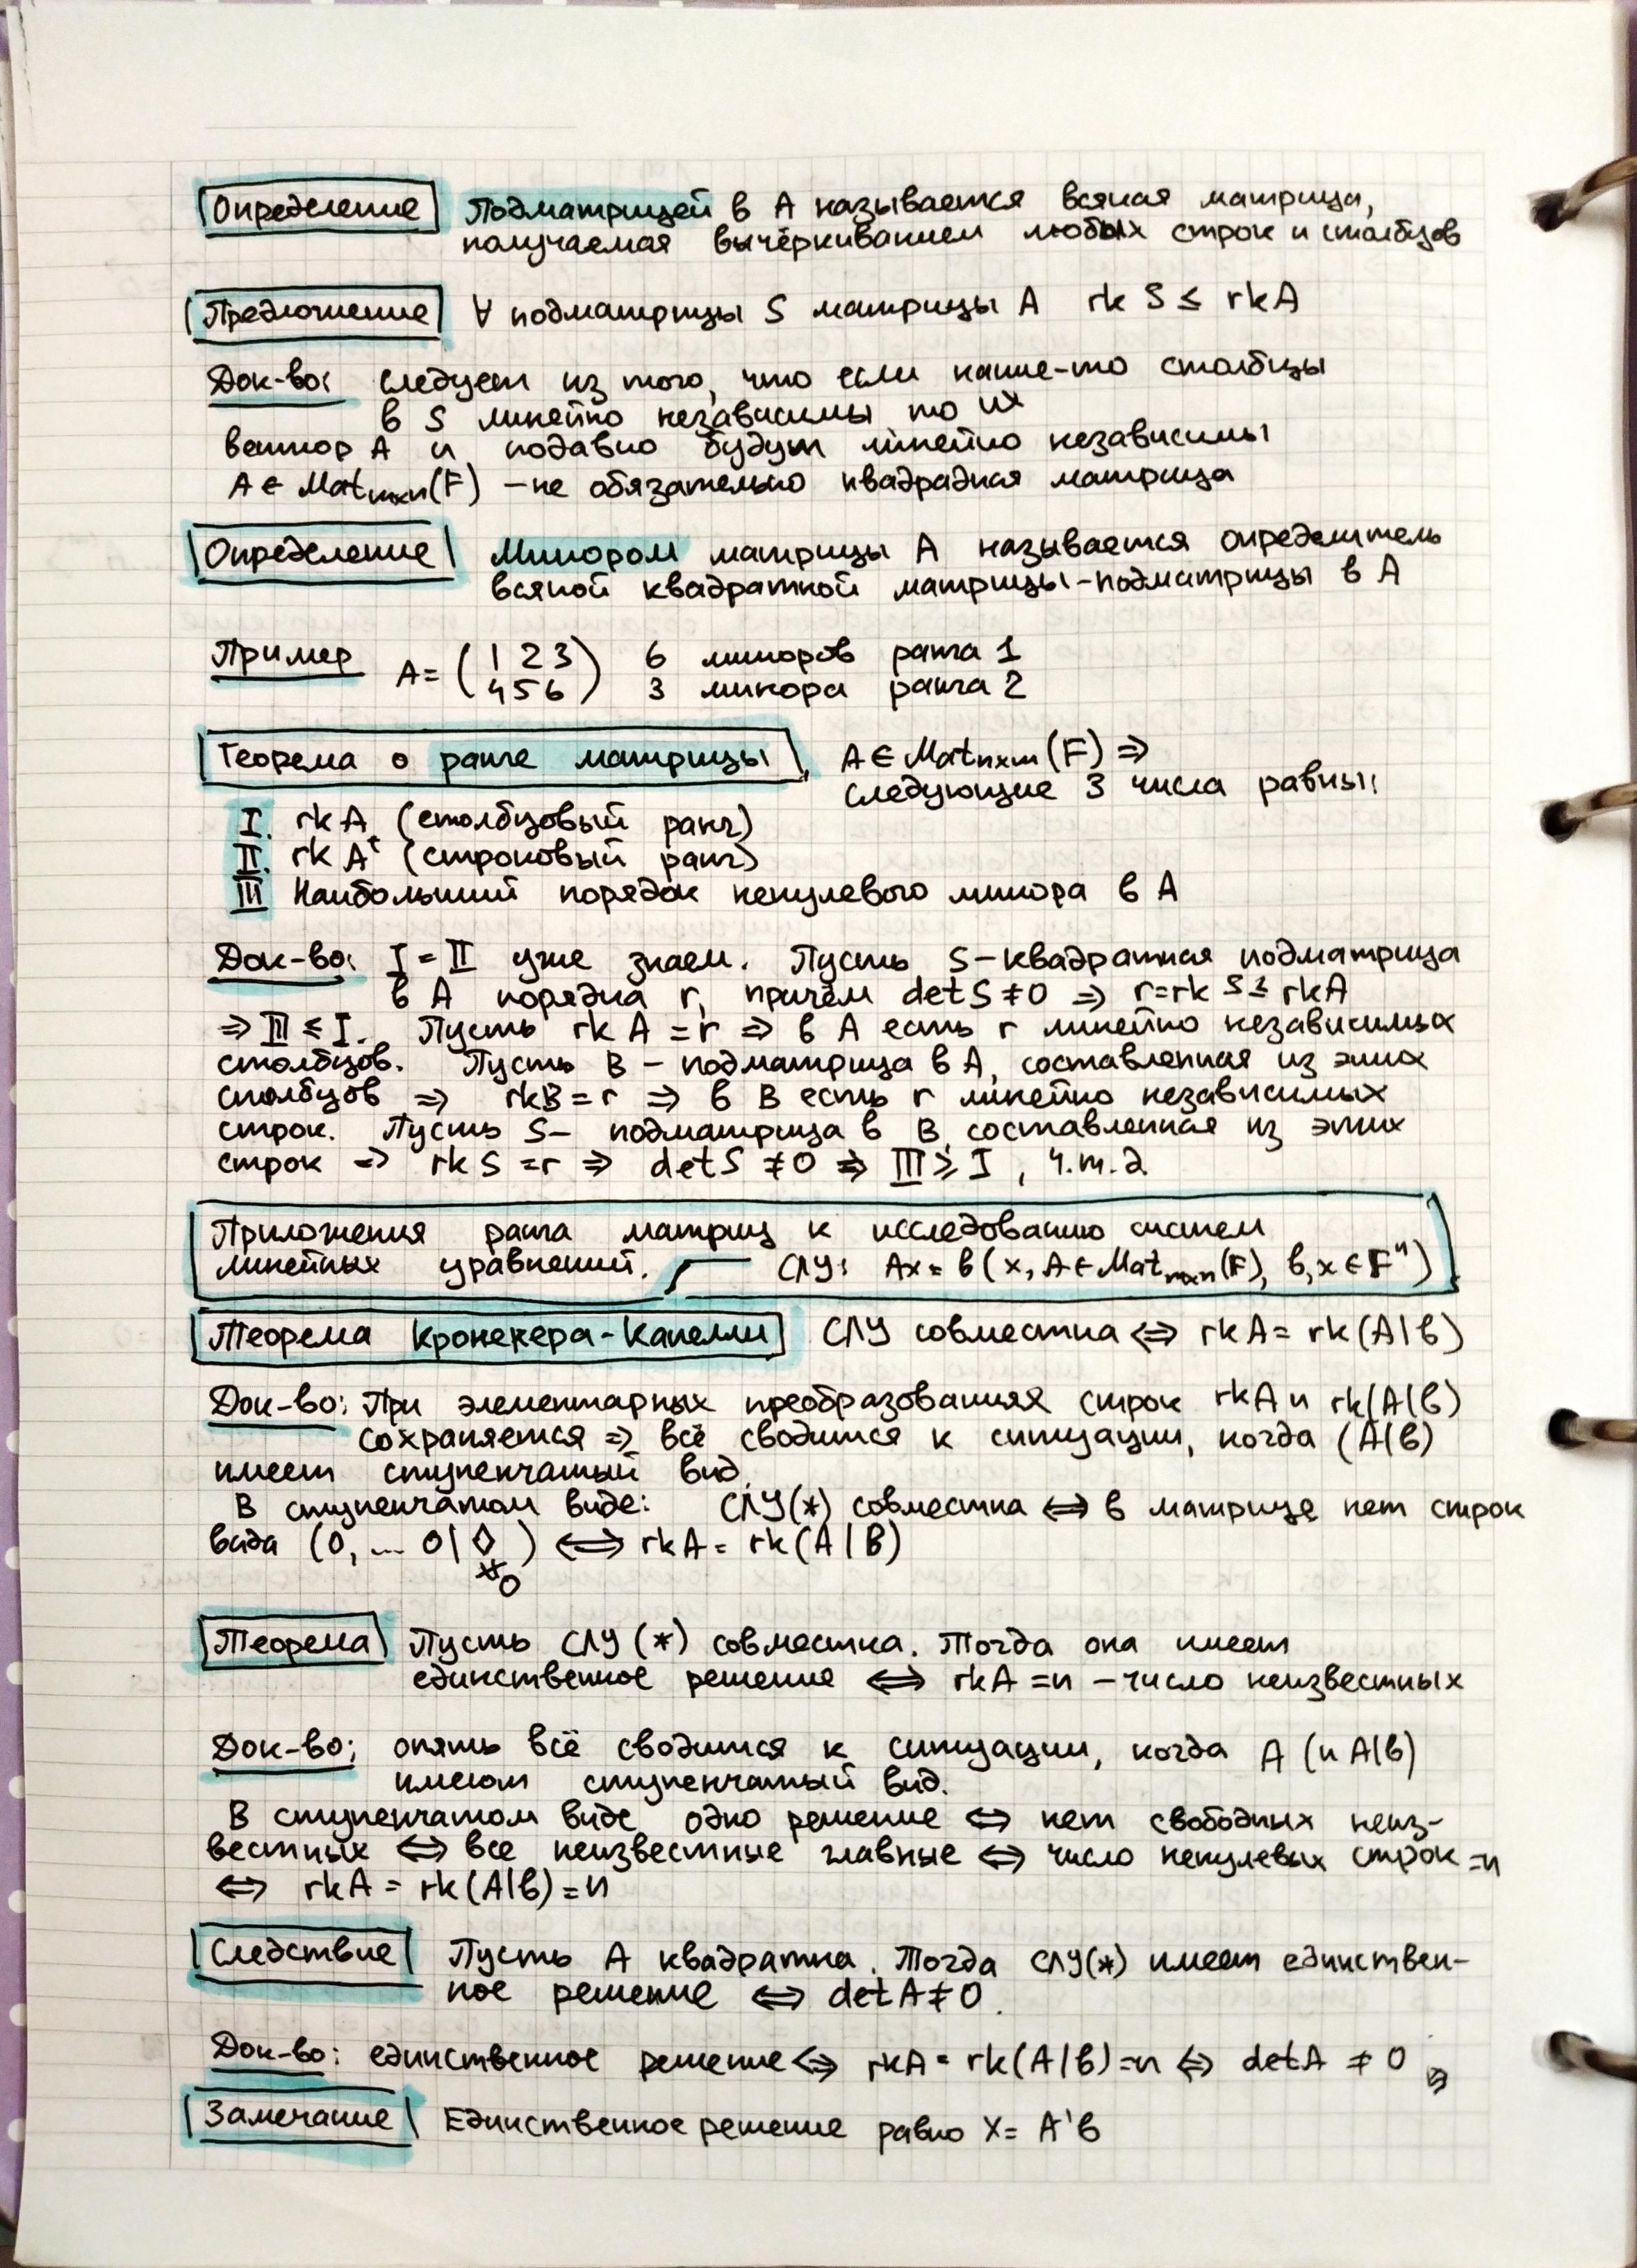 Определение Подматрицей в A называется всякая матрица,
получаемая вычёркиванием любых строк и столбцов
Предложение ∀ подматрицы S матрицы A rk S ≤ rkA
Док-во: следует из того, что если какие-то столбцы
в S линейно независимы то их
вектор A и подавно будут линейно независимы
A ∈ Mat_{m×n}(F) – не обязательно квадрадная матрица
Определение Минором матрицы A называется определитель
всякой квадратной матрицы-подматрицы в A
Пример A = (1 2 3) 6 миноров ранга 1
(4 5 6) 3 минора ранга 2
Теорема о ранге матрицы, A ∈ Mat_{n×m}(F) ⇒
следующие 3 числа равны:
I. rkA (столбцовый ранг)
II. rk Aᵗ (строковый ранг)
III Наибольший порядок ненулевого минора в A
Док-во: I = II уже знаем. Пусть S – квадратная подматрица
в A порядка r, причём detS ≠ 0 ⇒ r = rk S ≤ rkA
⇒ III ≤ I. Пусть rk A = r ⇒ в A есть r линейно независимых
столбцов. Пусть B – подматрица в A, составленная из этих
столбцов ⇒ rkB = r ⇒ в B есть r линейно независимых
строк. Пусть S – подматрица в B, составленная из этих
строк ⇒ rk S = r ⇒ detS ≠ 0 ⇒ III ≥ I, ч.т.д.
Приложения ранга матриц к исследованию систем
линейных уравнений. СЛУ: Ax = b (x, A ∈ Mat_{m×n}(F), b, x ∈ Fⁿ)
Теорема Кронекера-Капелли СЛУ совместна ⇔ rkA = rk(A|b)
Док-во: При элементарных преобразованиях строк rkA и rk(A|b)
сохраняется ⇒ всё сводится к ситуации, когда (A|b)
имеет ступенчатый вид.
В ступенчатом виде: СЛУ(*) совместна ⇔ в матрице нет строк
вида (0, ... 0|◊) ⇔ rkA = rk(A|B)
≠0
Теорема Пусть СЛУ (*) совместна. Тогда она имеет
единственное решение ⇔ rkA = n – число неизвестных
Док-во: опять всё сводится к ситуации, когда A (и A|b)
имеют ступенчатый вид.
В ступенчатом виде одно решение ⇔ нет свободных неиз-
вестных ⇔ все неизвестные главные ⇔ число ненулевых строк = n
⇔ rkA = rk(A|b) = n
Следствие Пусть A квадратна. Тогда СЛУ(*) имеет единствен-
ное решение ⇔ detA ≠ 0.
Док-во: единственное решение ⇔ rkA = rk(A|b) = n ⇔ detA ≠ 0
Замечание Единственное решение равно X = A'b